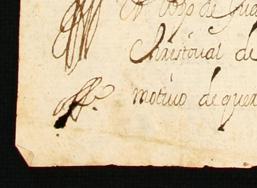 Obpo de Gua
Christoual de
off.o motiuo de quer